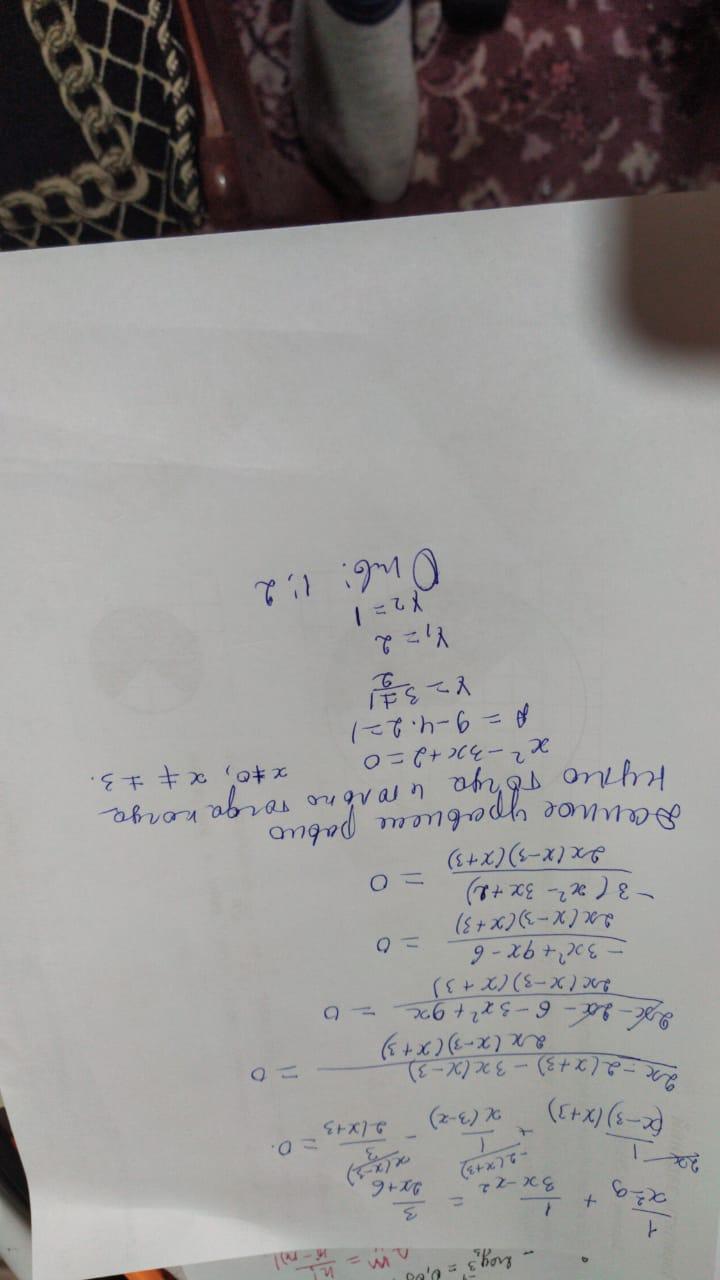 log₃ = 0,0 m = n! / (n-m)!
1/(x²-9) + 1/(3x-x²) = 3/(2x+6)
2x 1/((x-3)(x+3)) + -2(x+3) 1/(x(3-x)) - x(x-3) 3/(2(x+3) = 0.
(2x-2(x+3)-3x(x-3))/(2x(x-3)(x+3)) = 0
(2x-2x-6-3x²+9x)/(2x(x-3)(x+3)) = 0
(-3x²+9x-6)/(2x(x-3)(x+3)) = 0
-3(x²-3x+2)/(2x(x-3)(x+3)) = 0
Данное уравнение равно
нулю тогда и только тогда когда
x²-3x+2=0 x≠0, x≠±3.
D = 9-4·2=1
x = (3±1)/2
x₁ = 2
x₂ = 1
Отв: 1; 2